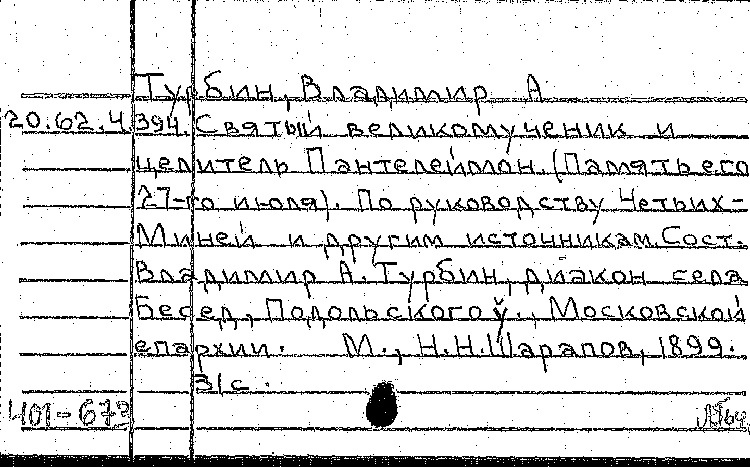 Турбин, Владимир А
20.62.4.394. Святый великомученик и
целитель Пантелеймон. (Память его
27-го июля). По руководству Четьих-
Миней и другим источникам. Сост.
Владимир А. Турбин, диакон села
Бесед, Подольского у., Московской
епархии. М., Н.Н. Шарапов, 1899.
31с.
401-673